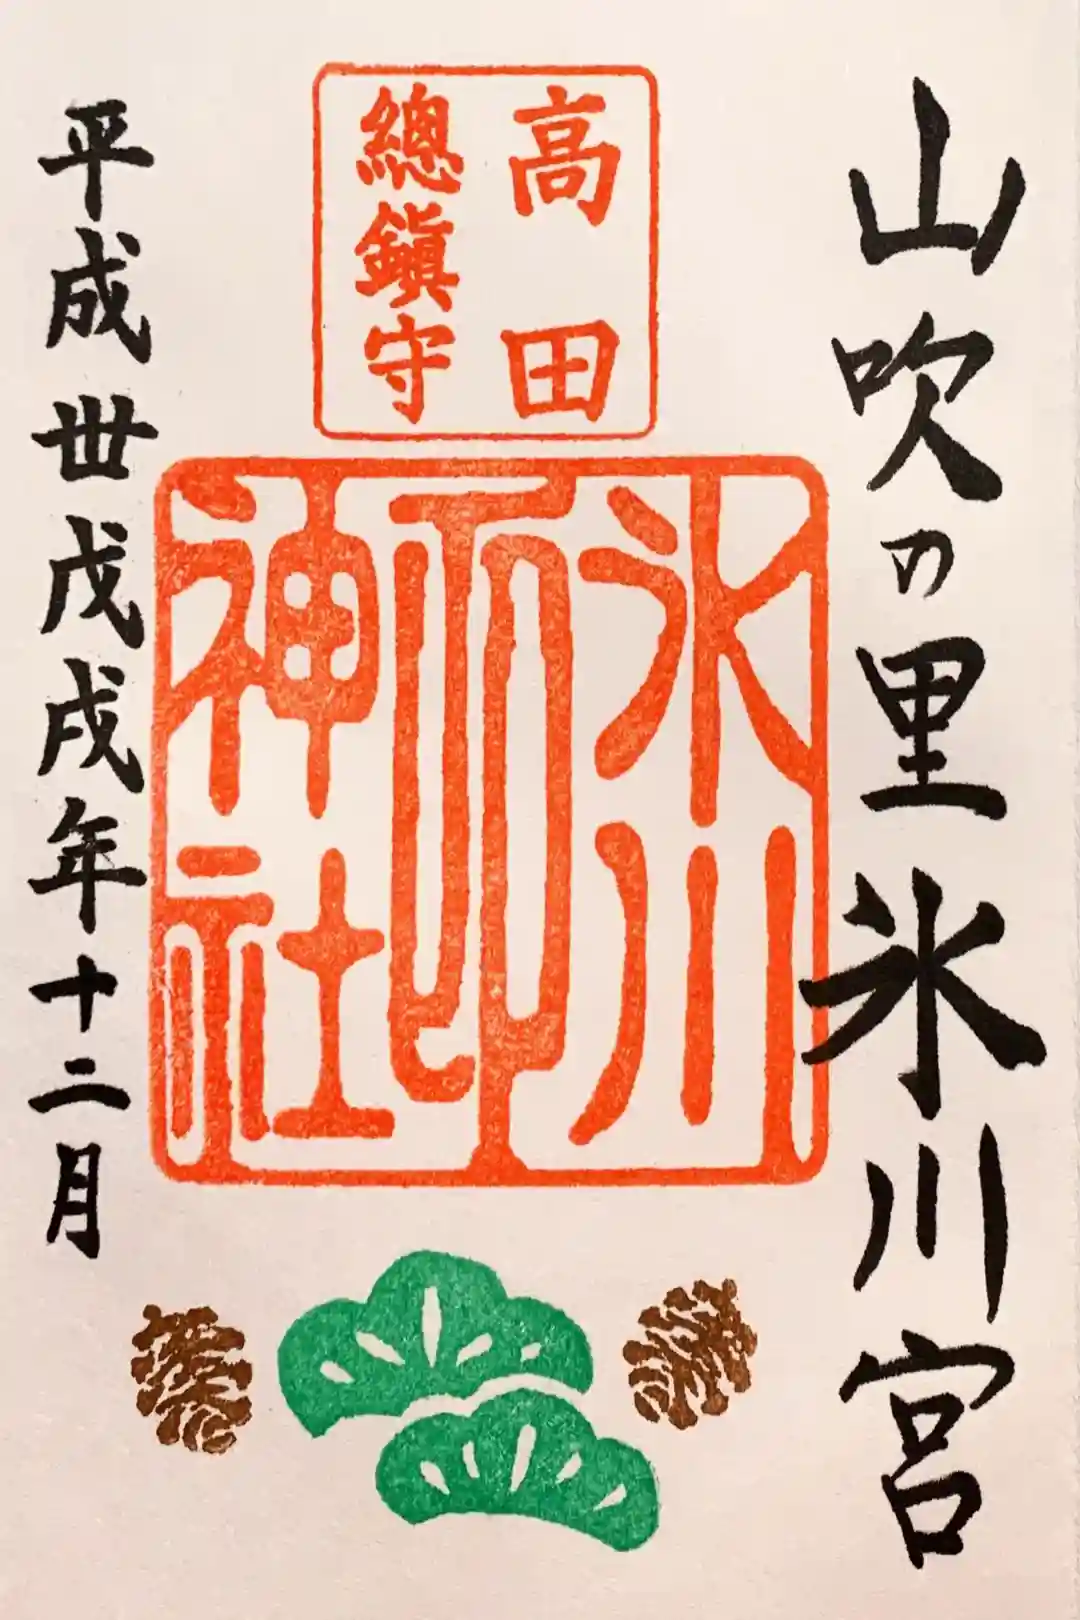 山吹の里氷川宮
高田
總鎮守
氷川
神社
平成丗戊戌年十二月